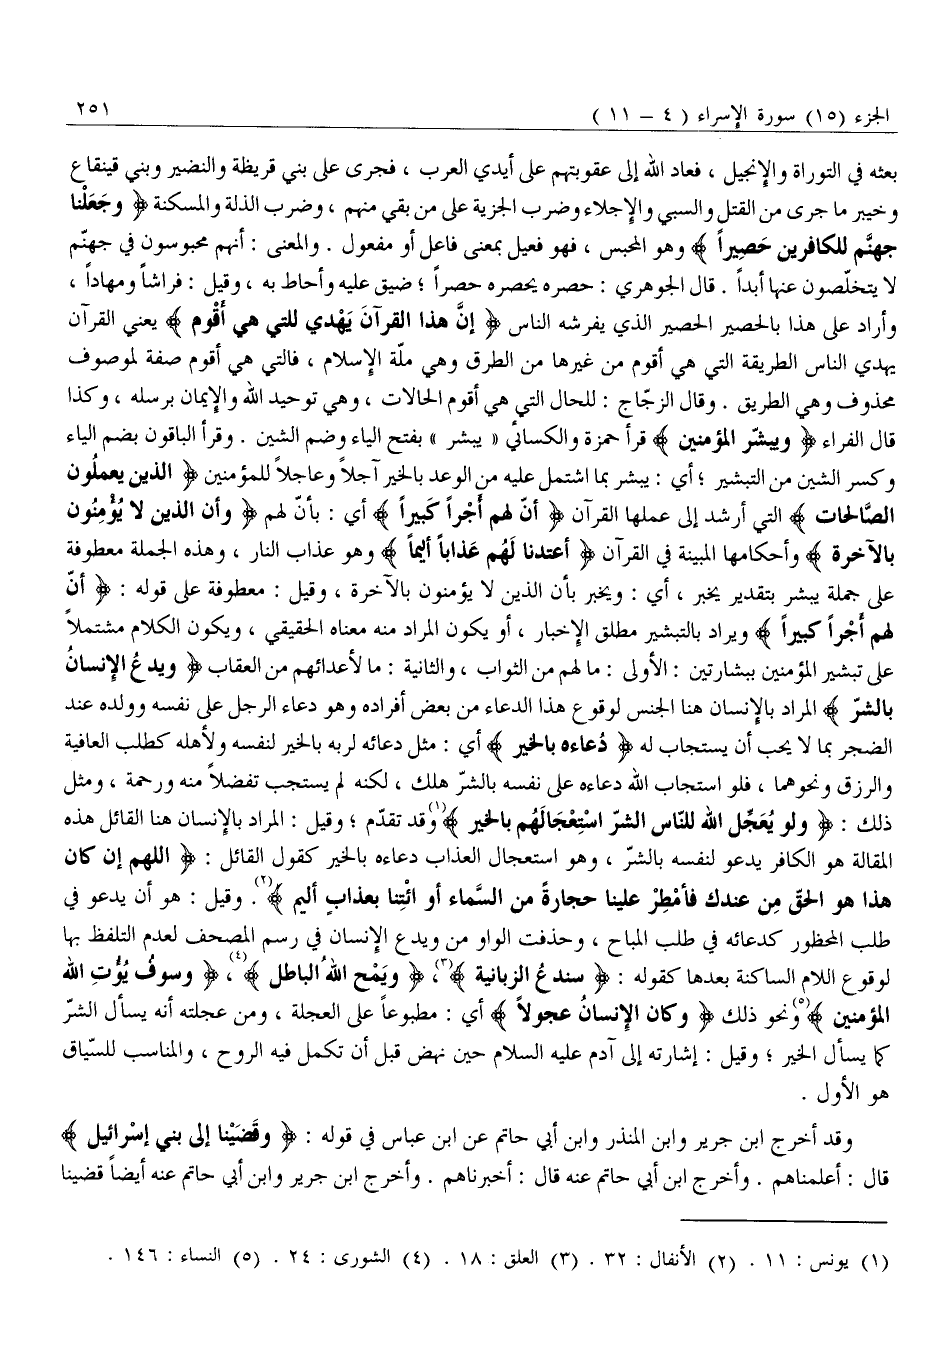 الجزء (١٥) سورة الإسراء ( ٤ – ١١ ) ٢٥١
بعثه في التوراة والإنجيل ، فعاد الله إلى عقوبتهم على أيدي العرب ، فجرى على بني قريظة والنضير وبني قينقاع
وخيبر ما جرى من القتل والسبي والإجلاء وضرب الجزية على من بقي منهم ، وضرب الذلة والمسكنة ﴿ وجَعَلْنا
جهنَّم للكافرين حَصِيراً ﴾ وهو المحبس ، فهو فعيل بمعنى فاعل أو مفعول . والمعنى : أنهم محبوسون في جهنّم
لا يتخلّصون عنها أبداً . قال الجوهري : حصره يحصره حصراً ؛ ضيق عليه وأحاط به ، وقيل : فراشاً ومهاداً ،
وأراد على هذا بالحصير الحصير الذي يفرشه الناس ﴿ إنَّ هذا القرآنَ يَهْدي للتي هي أَقْوم ﴾ يعني القرآن
يهدي الناس الطريقة التي هي أقوم من غيرها من الطرق وهي ملّة الإسلام ، فالتي هي أقوم صفة لموصوف
محذوف وهي الطريق . وقال الزجّاج : للحال التي هي أقوم الحالات ، وهي توحيد الله والإيمان برسله ، وكذا
قال الفراء ﴿ ويبشّر المؤمنين ﴾ قرأ حمزة والكسائي « يبشر » بفتح الياء وضم الشين . وقرأ الباقون بضم الياء
وكسر الشين من التبشير ؛ أي : يبشر بما اشتمل عليه من الوعد بالخير آجلاً وعاجلاً للمؤمنين ﴿ الذين يعملُون
الصَّالحات ﴾ التي أرشد إلى عملها القرآن ﴿ أنّ لهم أَجْراً كَبيراً ﴾ أي : بأنّ لهم ﴿ وأن الذين لا يُؤْمِنُون
بالآخرة ﴾ وأحكامها المبينة في القرآن ﴿ أعتدنا لَهُم عَذاباً أليماً ﴾ وهو عذاب النار ، وهذه الجملة معطوفة
على جملة يبشر بتقدير يخبر ، أي : ويخبر بأن الذين لا يؤمنون بالآخرة ، وقيل : معطوفة على قوله : ﴿ أنّ
لهم أَجْراً كبيراً ﴾ ويراد بالتبشير مطلق الإخبار ، أو يكون المراد منه معناه الحقيقي ، ويكون الكلام مشتملاً
على تبشير المؤمنين ببشارتين : الأولى : ما لهم من الثواب ، والثانية : ما لأعدائهم من العقاب ﴿ ويدعُ الإنسانُ
بالشرّ ﴾ المراد بالإنسان هنا الجنس لوقوع هذا الدعاء من بعض أفراده وهو دعاء الرجل على نفسه وولده عند
الضجر بما لا يحب أن يستجاب له ﴿ دُعاءه بالخير ﴾ أي : مثل دعائه لربه بالخير لنفسه ولأهله كطلب العافية
والرزق ونحوهما ، فلو استجاب الله دعاءه على نفسه بالشرّ هلك ، لكنه لم يستجب تفضلاً منه ورحمة ، ومثل
ذلك : ﴿ ولو يُعَجِّل الله للنّاس الشرّ اسْتِعْجالَهُم بالخير ﴾(١) وقد تقدّم ؛ وقيل : المراد بالإنسان هنا القائل هذه
المقالة هو الكافر يدعو لنفسه بالشرّ ، وهو استعجال العذاب دعاءه بالخير كقول القائل : ﴿ اللهم إن كان
هذا هو الحقّ مِن عندك فأمْطِرْ علينا حجارةً من السَّماء أو ائْتِنا بعذابٍ أليم ﴾(٢) . وقيل : هو أن يدعو في
طلب المحظور كدعائه في طلب المباح ، وحذفت الواو من ويدع الإنسان في رسم المصحف لعدم التلفظ بها
لوقوع اللام الساكنة بعدها كقوله : ﴿ سندعُ الزبانية ﴾(٣)، ﴿ ويَمْح اللهُ الباطل ﴾(٤)، ﴿ وسوفُ يُؤْتِ الله
المؤمنين ﴾(٥) ونحو ذلك ﴿ وكان الإنسانُ عجولاً ﴾ أي : مطبوعاً على العجلة ، ومن عجلته أنه يسأل الشرّ
كما يسأل الخير ؛ وقيل : إشارته إلى آدم عليه السلام حين نهض قبل أن تكمل فيه الروح ، والمناسب للسّياق
هو الأول .
وقد أخرج ابن جرير وابن المنذر وابن أبي حاتم عن ابن عباس في قوله : ﴿ وقَضَيْنا إلى بني إسْرائيل ﴾
قال : أعلمناهم . وأخرج ابن أبي حاتم عنه قال : أخبرناهم . وأخرج ابن جرير وابن أبي حاتم عنه أيضاً قضينا
(١) يونس : ١١ . (٢) الأنفال : ٣٢ . (٣) العلق : ١٨ . (٤) الشورى : ٢٤ . (٥) النساء : ١٤٦ .